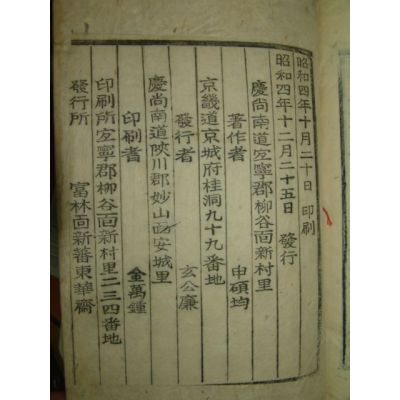 昭和四年十月二十日 印刷
昭和四年十二月二十五日 發行
慶尚南道宜寧郡柳谷面新村里
著作者 申碩均
京畿道京城府桂洞九十九番地
發行者 玄公廉
慶尚南道陜川郡妙山面安城里
印刷者 金萬鍾
印刷所 宜寧郡柳谷面新村里二三四番地
發行所 富林面新蕃東華齋